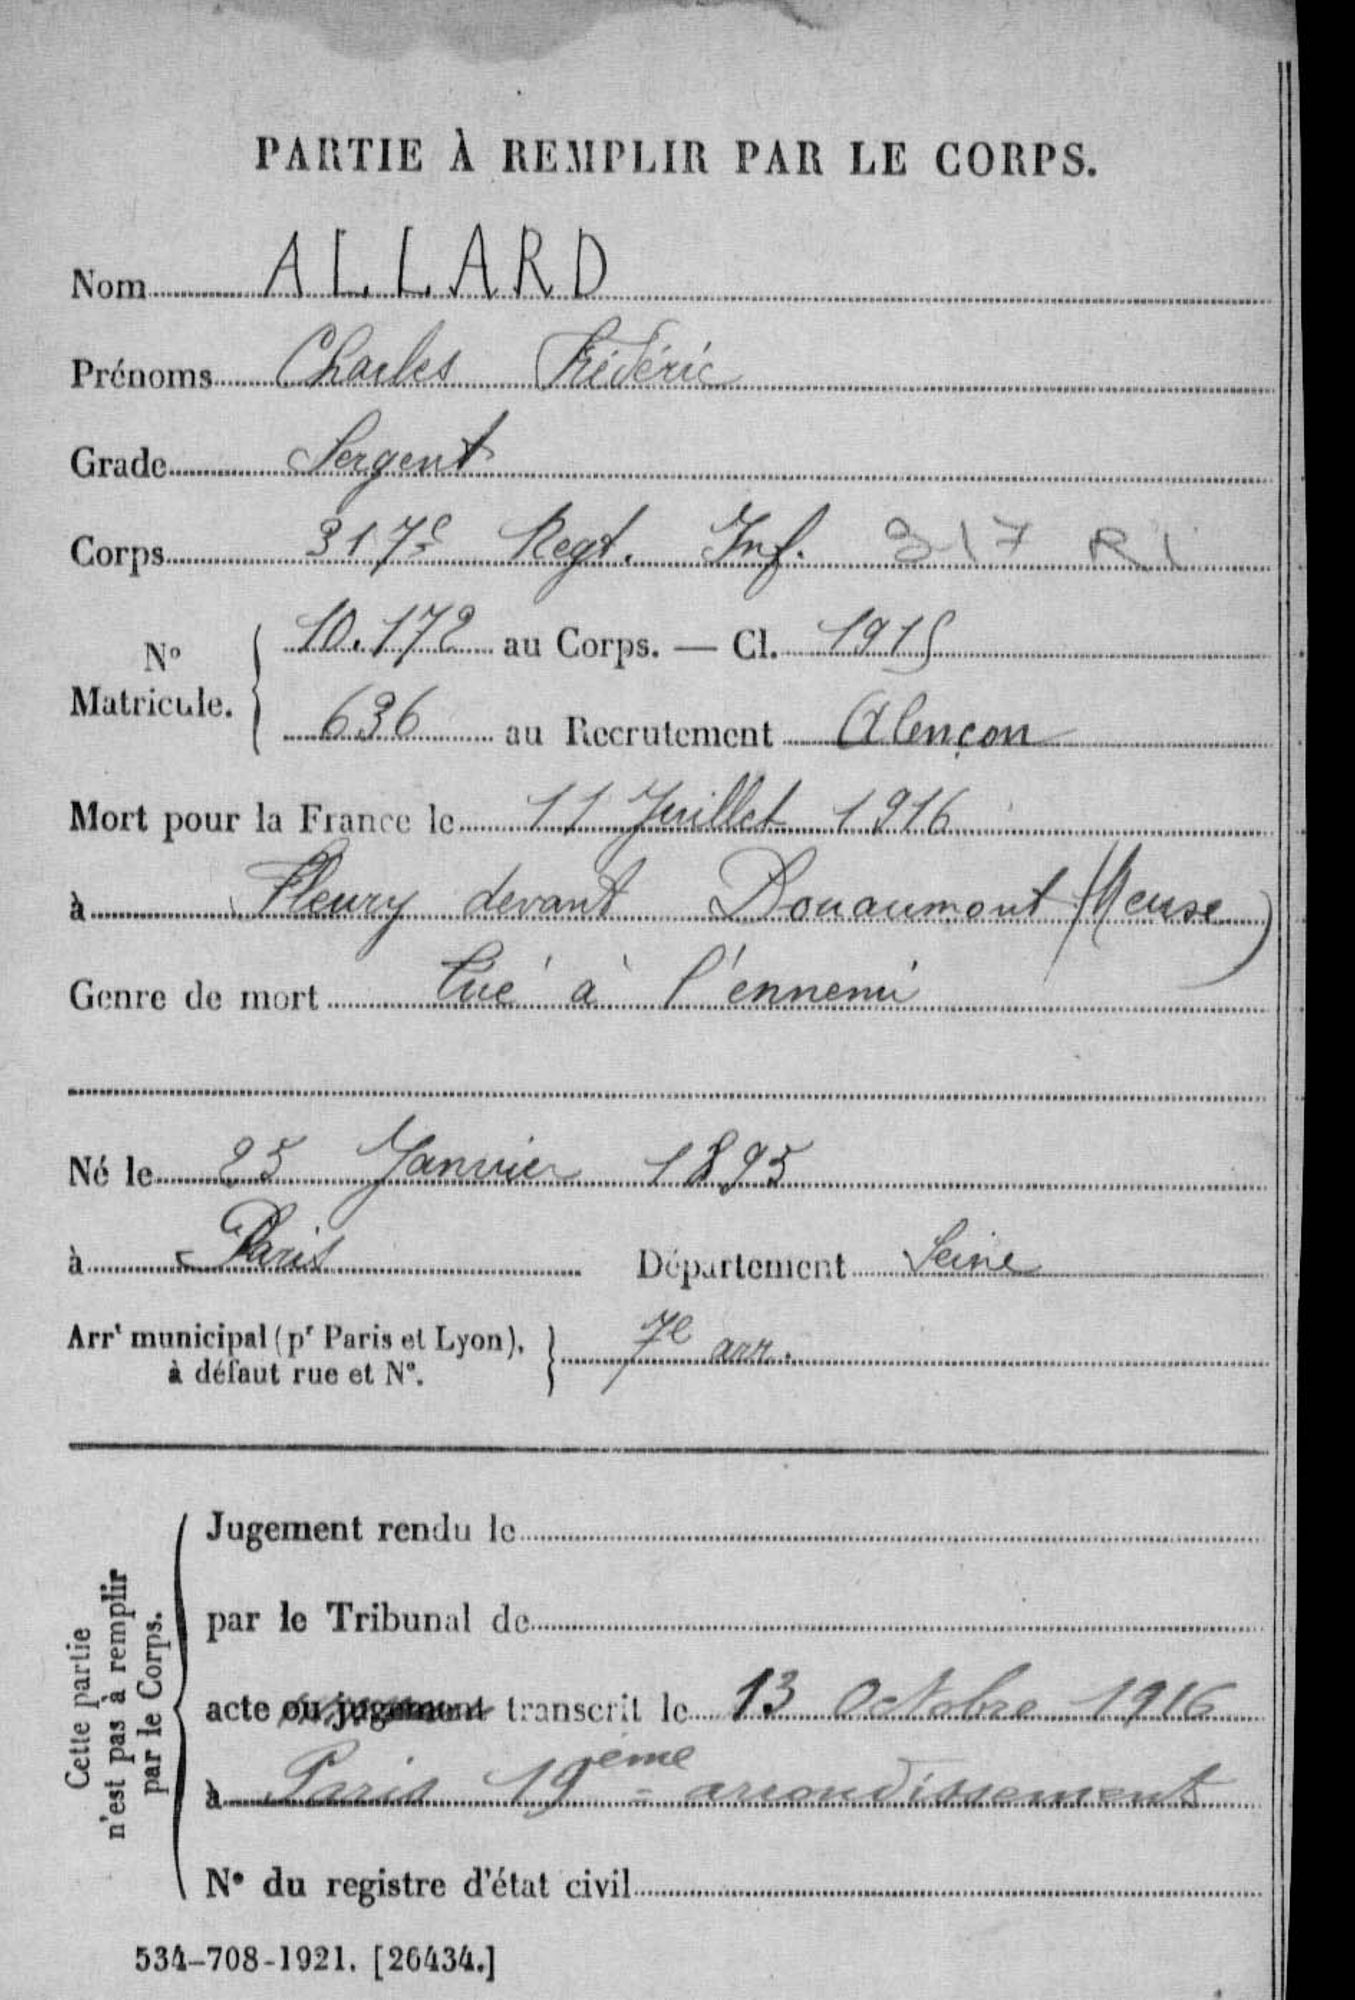 PARTIE À REMPLIR PAR LE CORPS.
Nom ALLARD
Prénoms Charles Frédéric
Grade Sergent
Corps 317e Regt. Inf. 317 RI
No Matricule. { 10.172 au Corps. — Cl. 1915
636 au Recrutement Alençon
Mort pour la France le 11 Juillet 1916
à Fleury devant Douaumont (Meuse)
Genre de mort Tué à l'ennemi
Né le 25 Janvier 1895
à Paris Département Seine
Arrt municipal (pr Paris et Lyon), } 7e arr.
à défaut rue et No.
Cette partie
n'est pas à remplir
par le Corps.
Jugement rendu le
par le Tribunal de
acte ou jugement transcrit le 13 Octobre 1916
à Paris 19ème arrondissement
No du registre d'état civil
534-708-1921. [26434.]